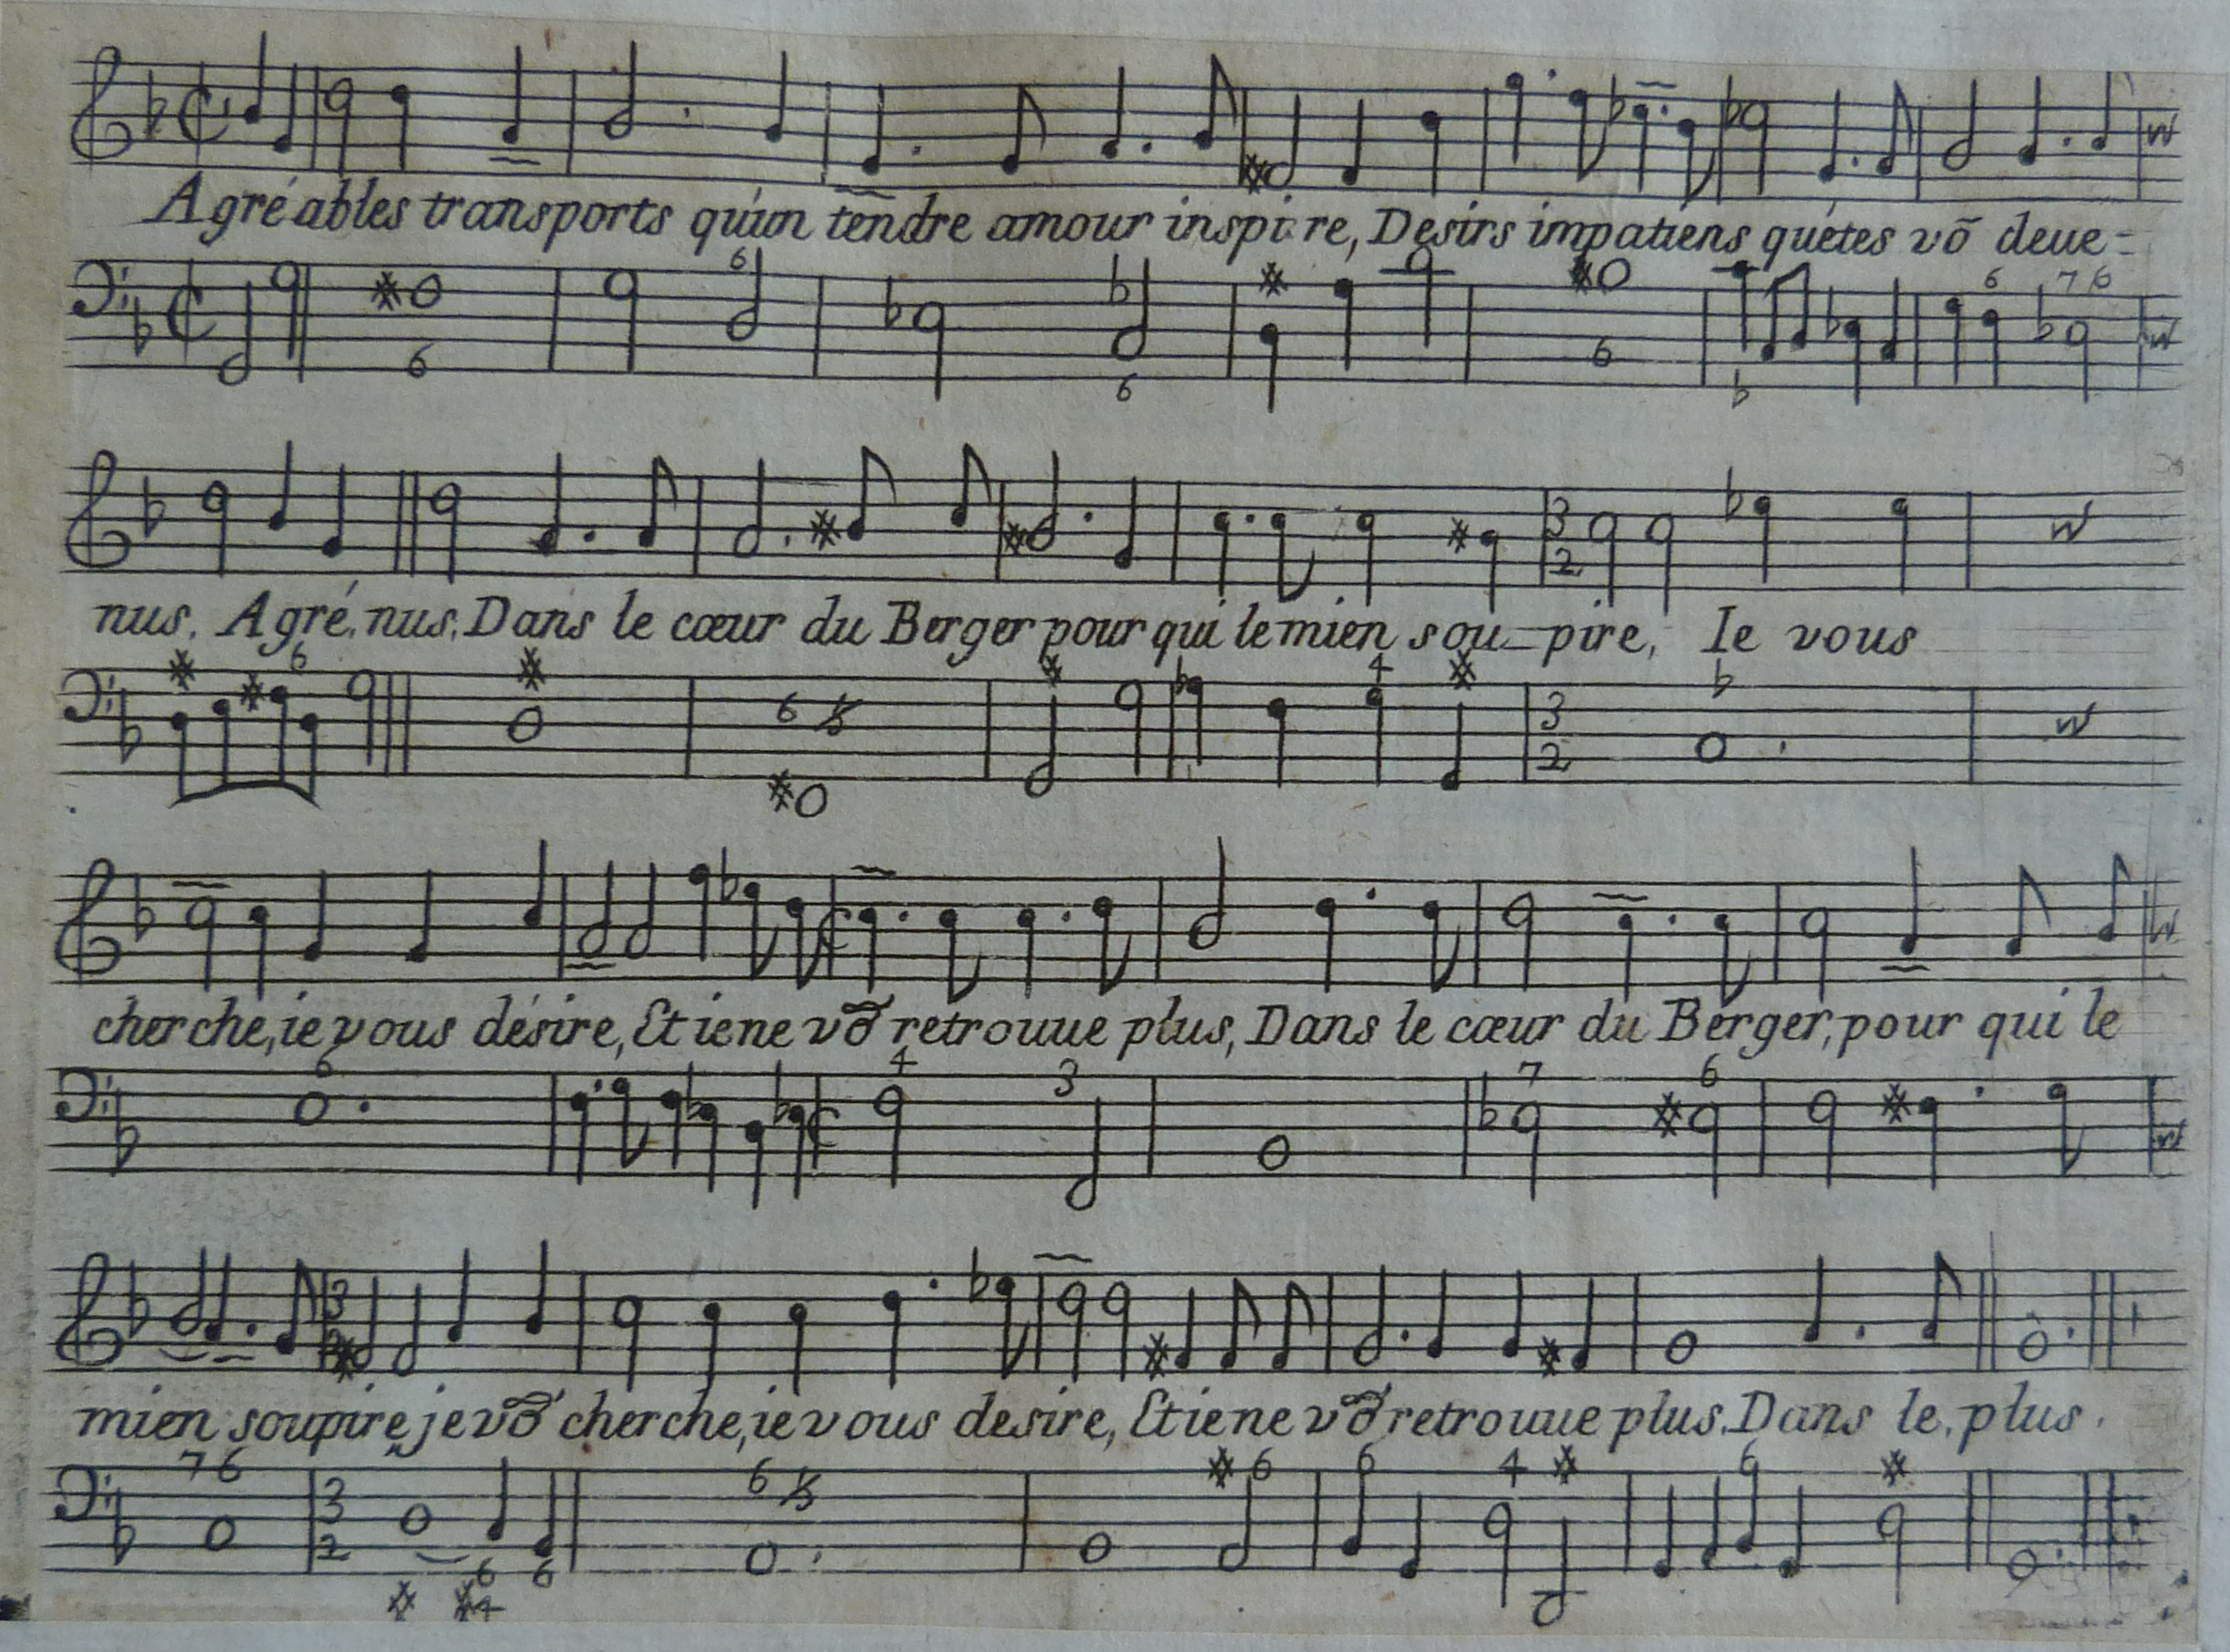 Agréables transports qu'un tendre amour inspire, Desirs impatiens qu'étes võ deue=
nus. Agré. nus. Dans le cœur du Berger pour qui le mien sou-pire, Ie vous
cherche, ie vous désire, Et ie ne võ retrouue plus, Dans le cœur du Berger, pour qui le
mien soupire, je võ cherche, ie vous desire, Et ie ne võ retrouue plus. Dans le. plus.